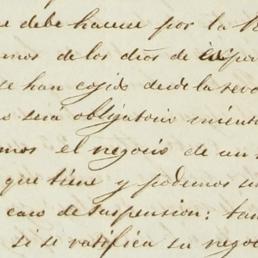 debe hacerse por la
mos de los dias de
se han cojido desde la revo
o será obligatorio mient
mos el negocio de un
que tiene y podemos su
caso de suspension: tam
si se ratifica su nego